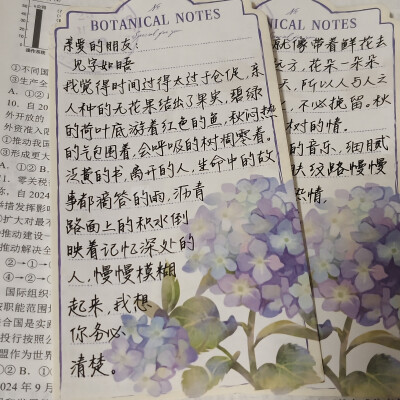 BOTANICAL NOTES
亲爱的朋友:
见字如晤
我觉得时间过得太过于仓促,亲
人种的无花果结出了果实,碧绿
的荷叶底游着红色的鱼,秋闷热
的气包围着,会呼吸的树凋零着。
泛黄的书,离开的人,生命中的故
事都滴答的雨,沥青
路面上的积水倒
映着记忆深处的
人,慢慢模糊
起来,我想
你务必
清楚。
BOTANICAL NOTES
就像带着鲜花去
方,花朵一朵朵
天,所以人与人之
,不必挽留。秋
树的情。
的音乐,细腻
大纹路慢慢
情。
①不同国
③生产全
10. 自 20
外开放的
外资准入限
①推动我国
③形成更大
A. ①②
11. 零关税
际。自 2024
举措发挥影响
①扩大对最不
推动建设
推动解决全
②→①→
④→②→
国际组织
职能范围
合国是实践
投行按照公
盟作为世界
①② B. ①
2024 年 9 月